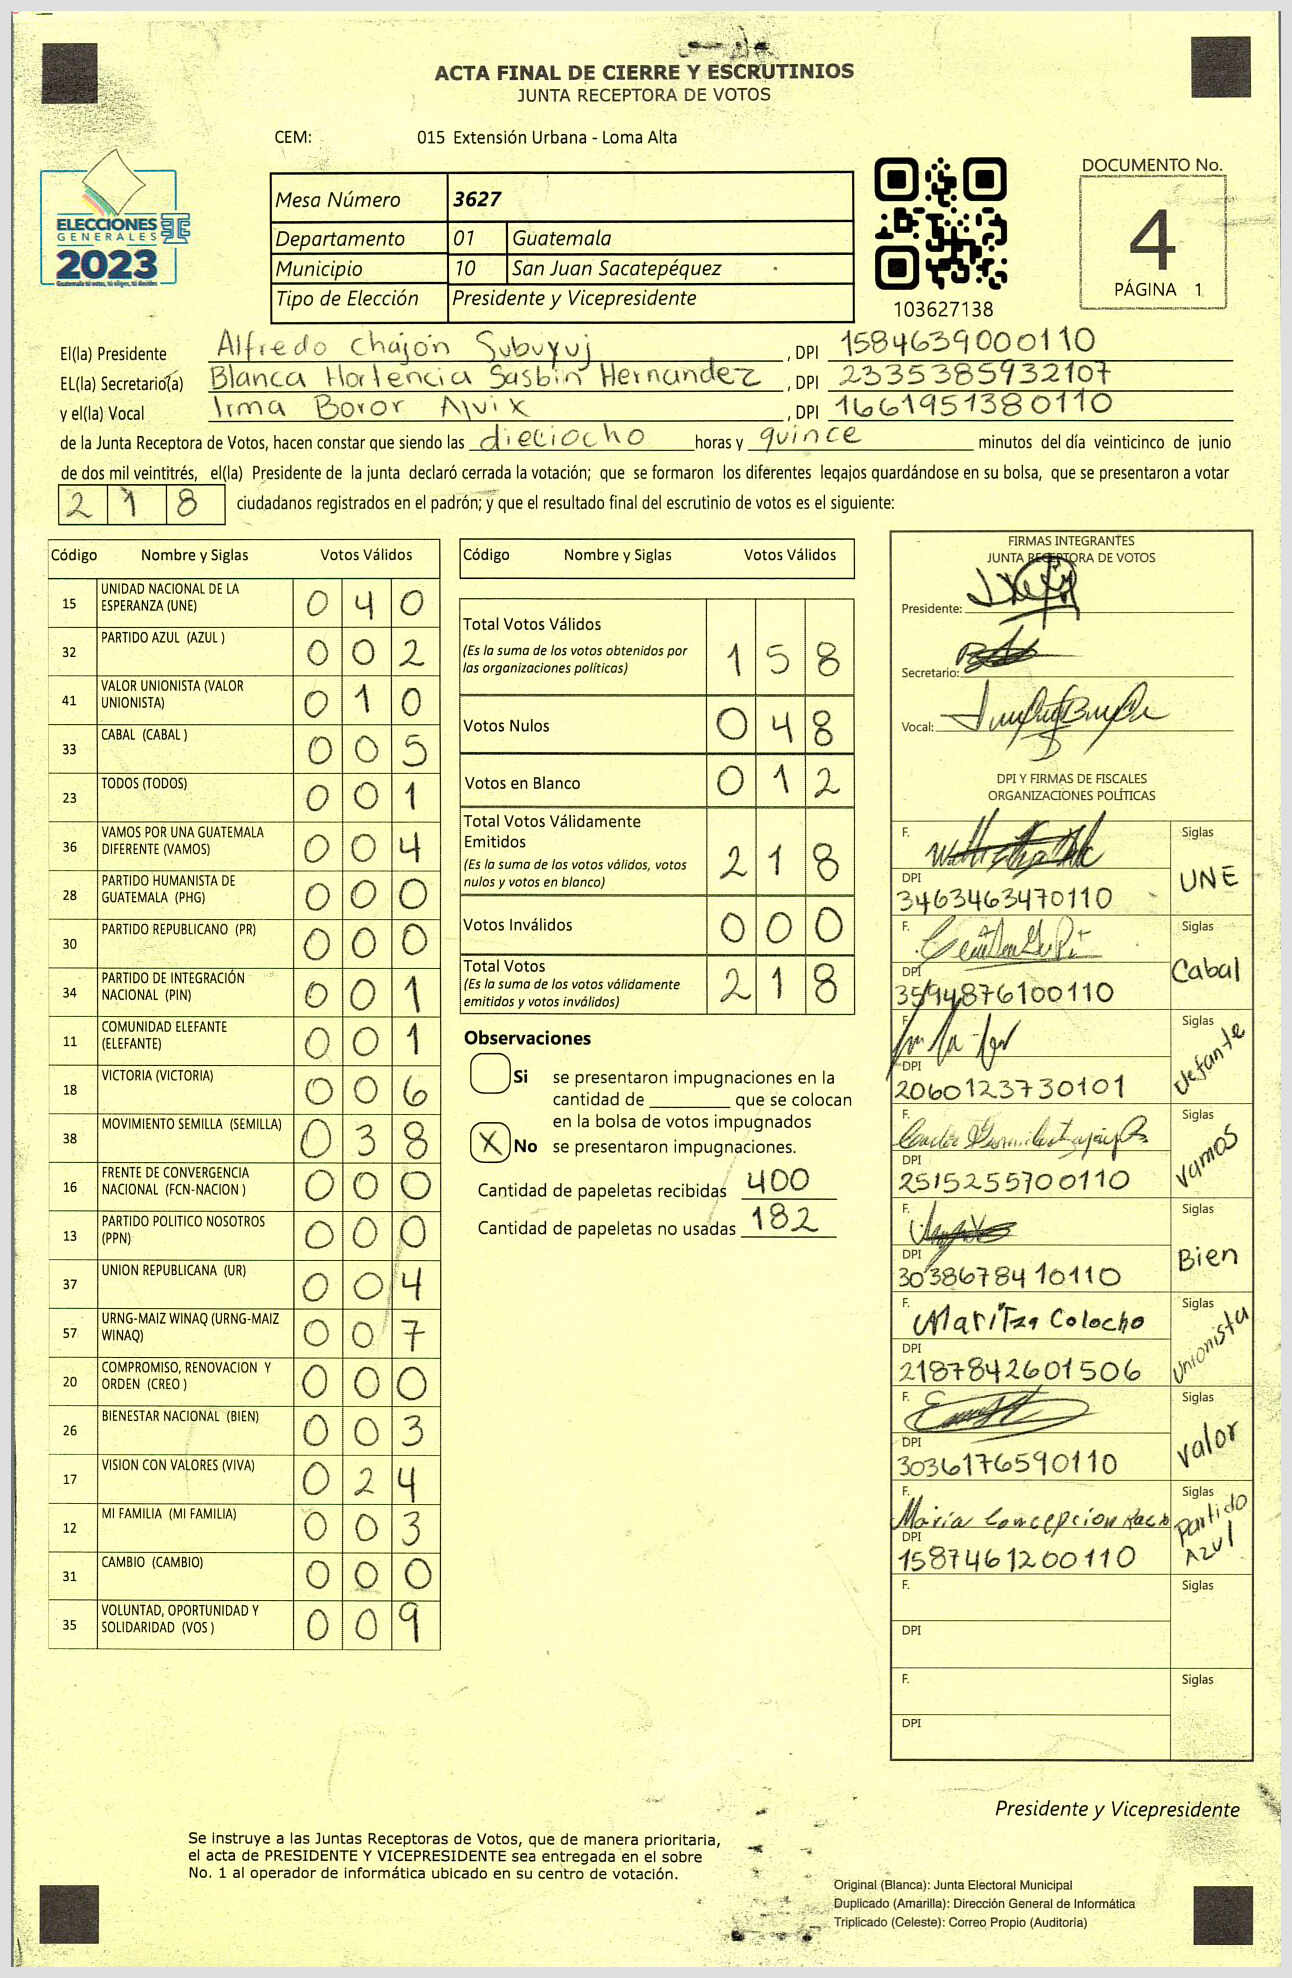 ACTA FINAL DE CIERRE Y ESCRUTINIOS
JUNTA RECEPTORA DE VOTOS
CEM: 015 Extensión Urbana - Loma Alta
ELECCIONES
GENERALES
2023
Guatemala tú votas, tú eliges, tú decides
Mesa Número 3627
Departamento 01 Guatemala
Municipio 10 San Juan Sacatepéquez
Tipo de Elección Presidente y Vicepresidente
103627138
DOCUMENTO No.
4
PÁGINA 1
El(la) Presidente Alfredo Chajón Subuyuj , DPI 1584639000110
EL(la) Secretario(a) Blanca Hortencia Sasbin Hernandez , DPI 2335385932107
y el(la) Vocal Irma Boror Ajvix , DPI 1661951380110
de la Junta Receptora de Votos, hacen constar que siendo las dieciocho horas y quince minutos del día veinticinco de junio
de dos mil veintitrés, el(la) Presidente de la junta declaró cerrada la votación; que se formaron los diferentes legajos guardándose en su bolsa, que se presentaron a votar
218 ciudadanos registrados en el padrón; y que el resultado final del escrutinio de votos es el siguiente:
Código Nombre y Siglas Votos Válidos
15 UNIDAD NACIONAL DE LA ESPERANZA (UNE) 040
32 PARTIDO AZUL (AZUL ) 002
41 VALOR UNIONISTA (VALOR UNIONISTA) 010
33 CABAL (CABAL ) 005
23 TODOS (TODOS) 001
36 VAMOS POR UNA GUATEMALA DIFERENTE (VAMOS) 004
28 PARTIDO HUMANISTA DE GUATEMALA (PHG) 000
30 PARTIDO REPUBLICANO (PR) 000
34 PARTIDO DE INTEGRACIÓN NACIONAL (PIN) 001
11 COMUNIDAD ELEFANTE (ELEFANTE) 001
18 VICTORIA (VICTORIA) 006
38 MOVIMIENTO SEMILLA (SEMILLA) 038
16 FRENTE DE CONVERGENCIA NACIONAL (FCN-NACION ) 000
13 PARTIDO POLITICO NOSOTROS (PPN) 000
37 UNION REPUBLICANA (UR) 004
57 URNG-MAIZ WINAQ (URNG-MAIZ WINAQ) 007
20 COMPROMISO, RENOVACION Y ORDEN (CREO ) 000
26 BIENESTAR NACIONAL (BIEN) 003
17 VISION CON VALORES (VIVA) 024
12 MI FAMILIA (MI FAMILIA) 003
31 CAMBIO (CAMBIO) 000
35 VOLUNTAD, OPORTUNIDAD Y SOLIDARIDAD (VOS ) 009
Código Nombre y Siglas Votos Válidos
Total Votos Válidos 158
(Es la suma de los votos obtenidos por
las organizaciones políticas)
Votos Nulos 048
Votos en Blanco 012
Total Votos Válidamente
Emitidos 218
(Es la suma de los votos válidos, votos
nulos y votos en blanco)
Votos Inválidos 000
Total Votos 218
(Es la suma de los votos válidamente
emitidos y votos inválidos)
Observaciones
Si se presentaron impugnaciones en la
cantidad de ________ que se colocan
en la bolsa de votos impugnados
X No se presentaron impugnaciones.
Cantidad de papeletas recibidas 400
Cantidad de papeletas no usadas 182
FIRMAS INTEGRANTES
JUNTA RECEPTORA DE VOTOS
Presidente:
Secretario:
Vocal:
DPI Y FIRMAS DE FISCALES
ORGANIZACIONES POLÍTICAS
F. Siglas UNE
DPI 3463463470110
F. Siglas Cabal
DPI 3594876100110
F. Siglas
DPI 2060123730101
F. Siglas Vamos
DPI 2515255700110
F. Siglas Bien
DPI 3038678410110
F. Maritza Colocho Siglas Unionista
DPI 2187842601506
F. Siglas Valor
DPI 3036176590110
F. Maria Concepcion Siglas Partido Azul
DPI 1587461200110
F. Siglas
DPI
F. Siglas
DPI
Presidente y Vicepresidente
Se instruye a las Juntas Receptoras de Votos, que de manera prioritaria,
el acta de PRESIDENTE Y VICEPRESIDENTE sea entregada en el sobre
No. 1 al operador de informática ubicado en su centro de votación.
Original (Blanca): Junta Electoral Municipal
Duplicado (Amarilla): Dirección General de Informática
Triplicado (Celeste): Correo Propio (Auditoría)